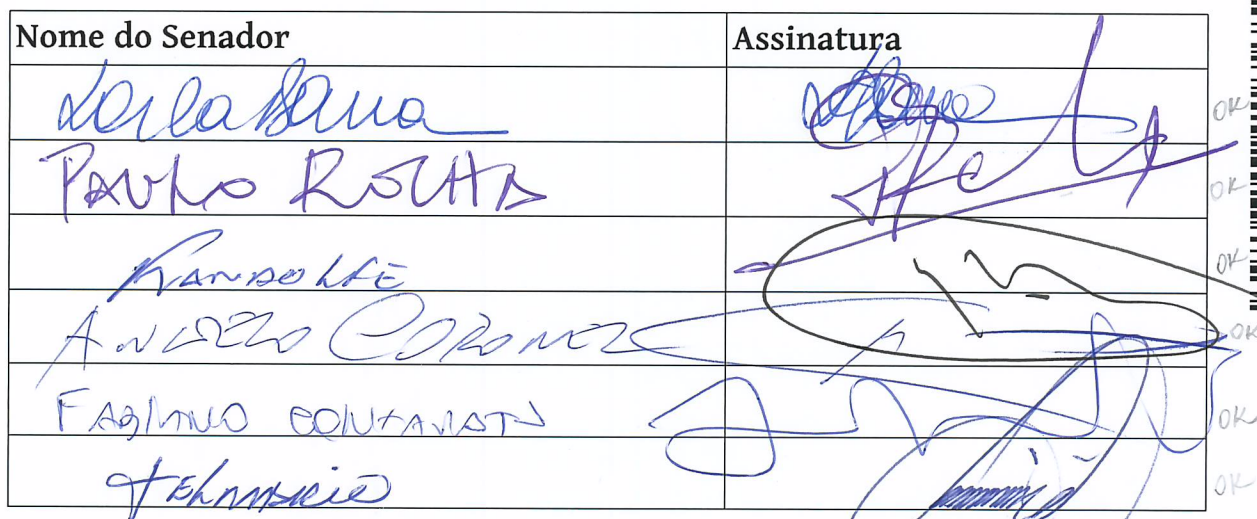 Nome do Senador Assinatura
Leila Barros OK
PAULO ROCHA OK
RANDOLFE OK
ANGELO CORONEL OK
FABIANO CONTARATO OK
OK